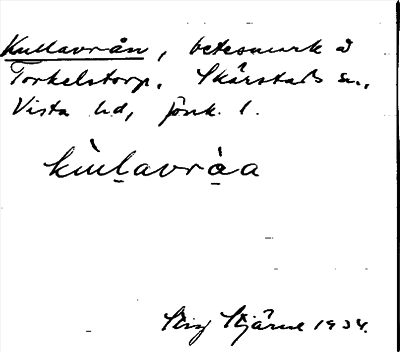 Kullavrån, betesmark å
Torkelstorp, Skärstads sn.,
Vista hd, Jönk. l.
kùl̠avrå̠a
Stig Stjärne 1934.